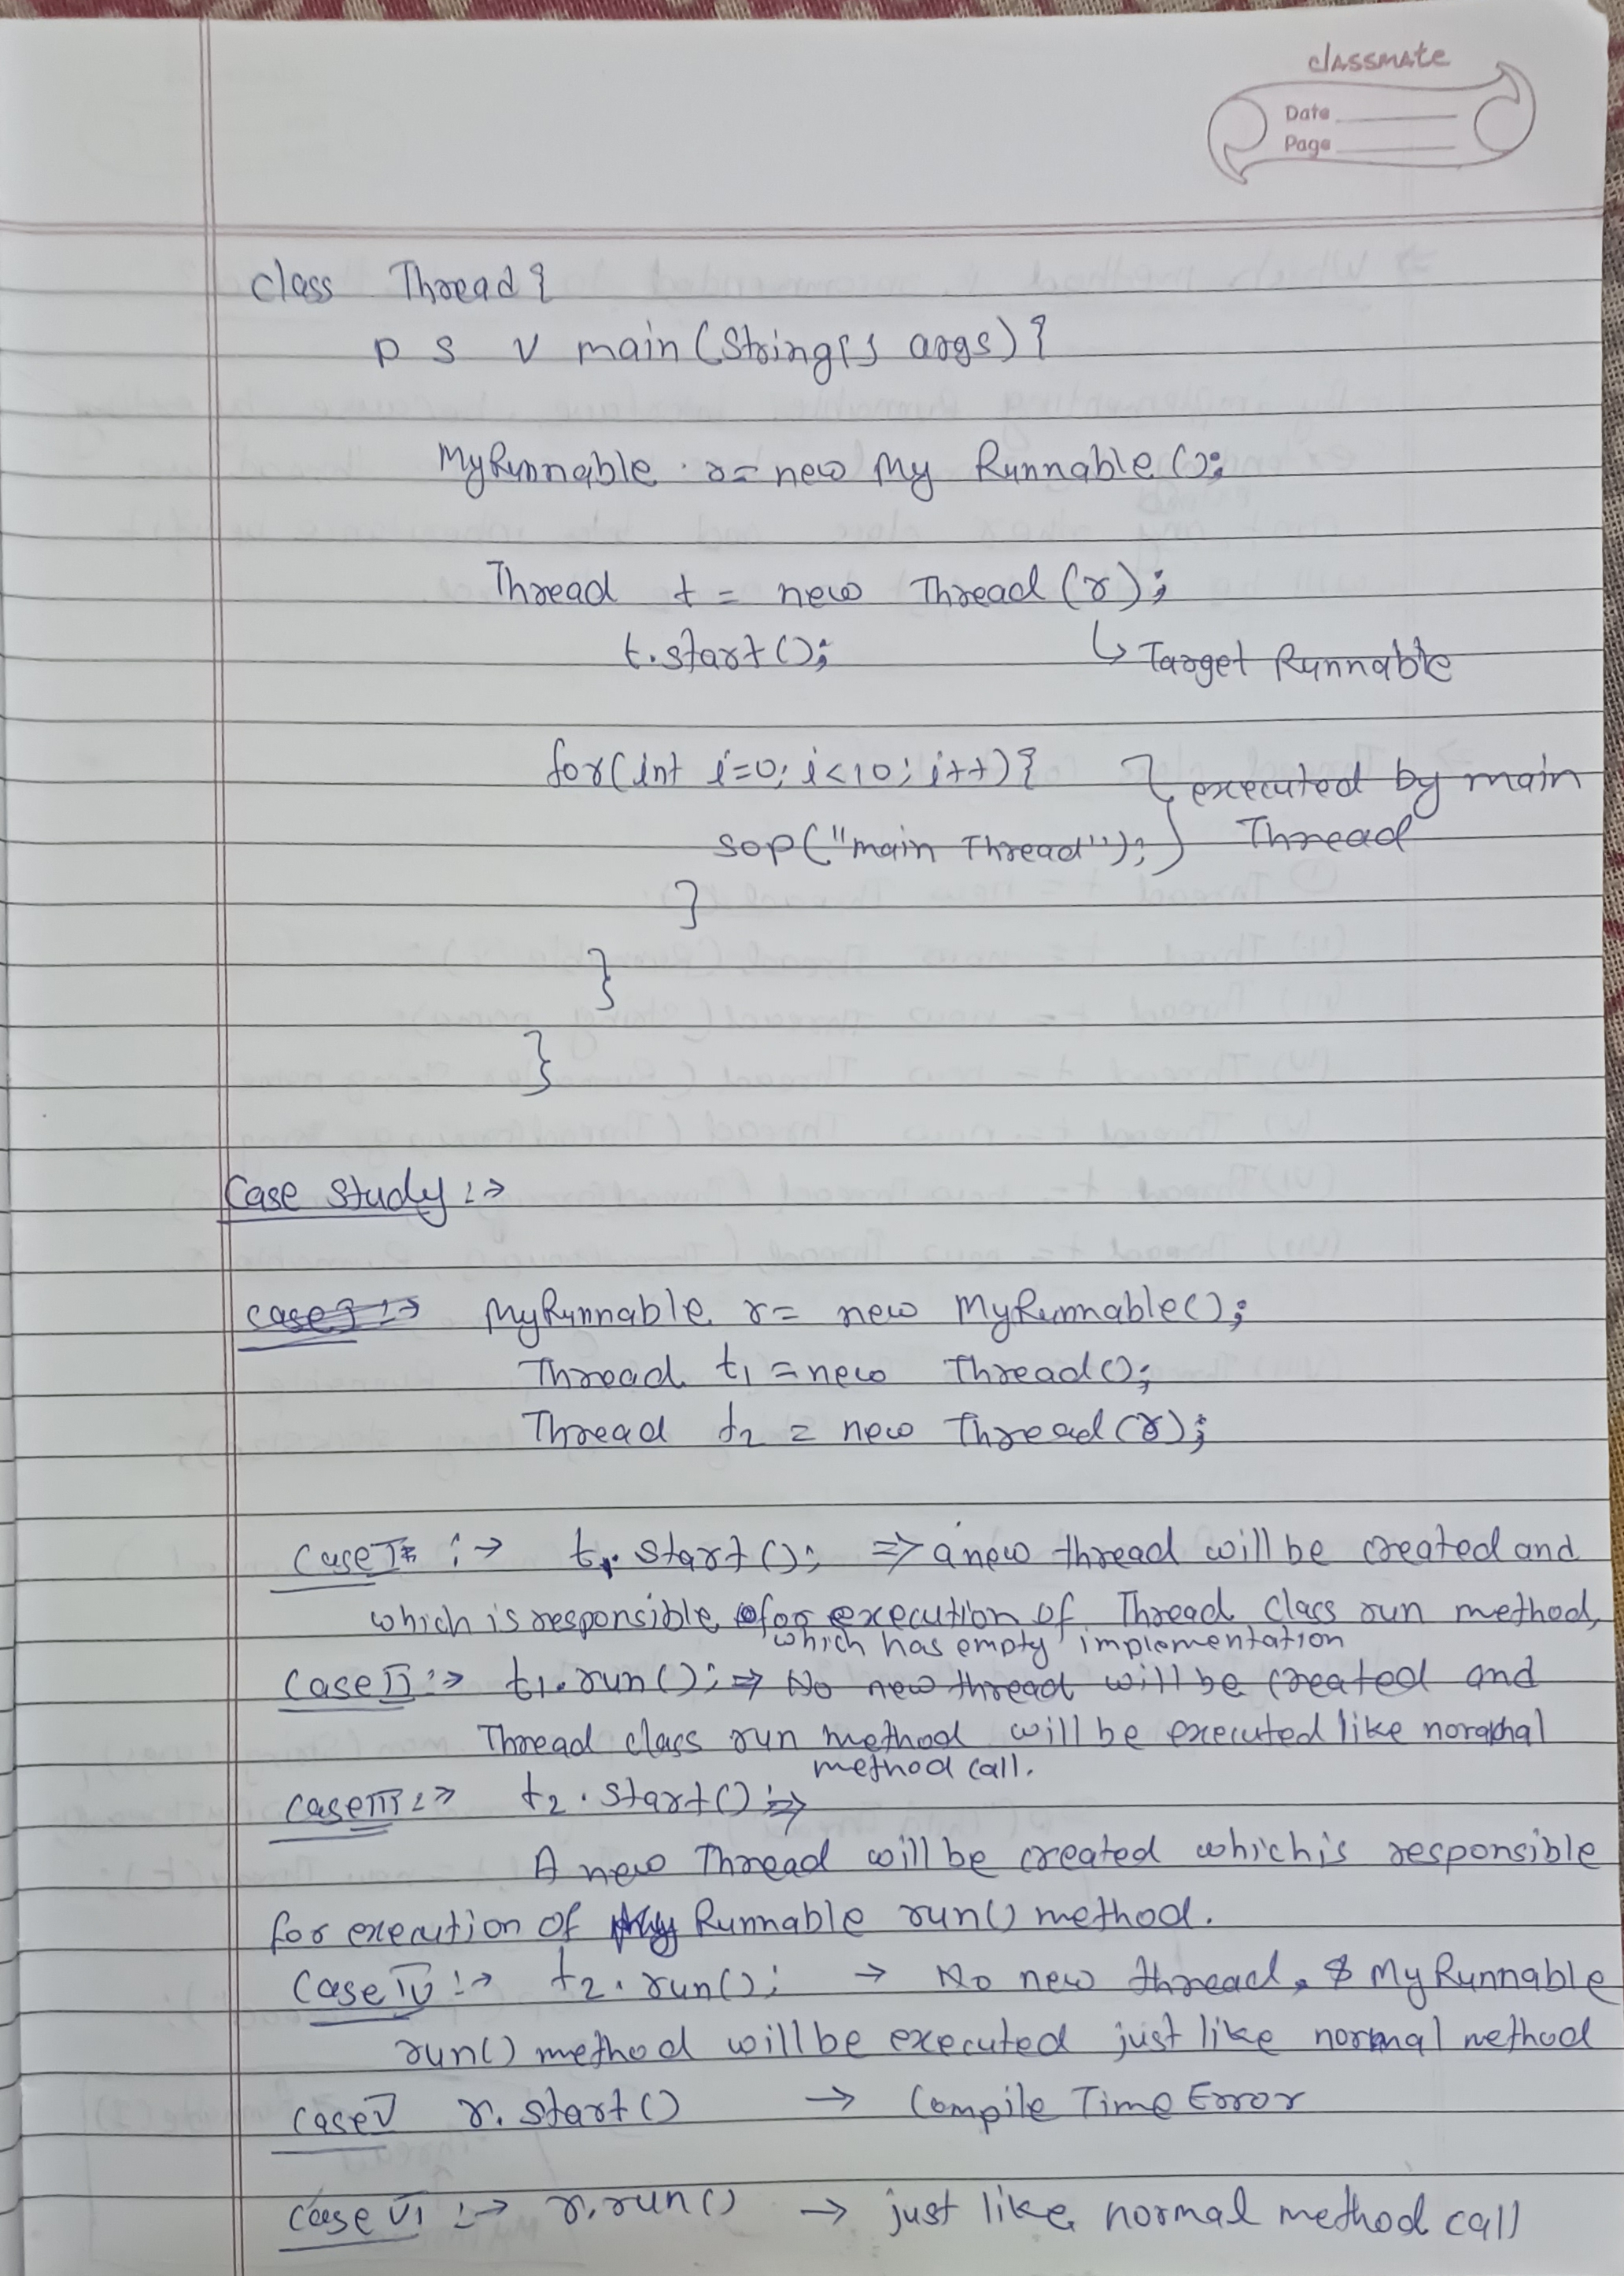 classmate
Date
Page
class Thread{
p s v main(String[] args){
MyRunnable r= new My Runnable();
Thread t = new Thread (r);
t.start(); ↳ Target Runnable
for(int i=0; i<10; i++){ } executed by main
sop("main Thread"); Thread
}
}
}
Case study :→
MyRunnable r= new MyRunnable();
Thread t1 = new Thread();
Thread t2 = new Thread(r);
Case I :→ t1. start(); => a new thread will be created and
which is responsible for execution of Thread class run method,
which has empty implementation
Case II :→ t1.run(); => No new thread will be created and
Thread class run method will be executed like normal
method call.
case III :→ t2.start() =>
A new Thread will be created which is responsible
for execution of My Runnable run() method.
Case IV :→ t2.run(); → No new thread, & My Runnable
run() method will be executed just like normal method
case V r.start() → Compile Time Error
Case VI :→ r.run() → just like normal method call